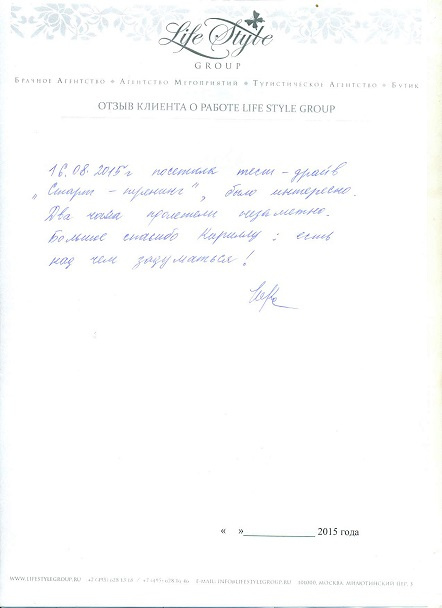 Life Style
GROUP
Брачное Агентство • Агентство Мероприятий • Туристическое Агентство • Бутик
ОТЗЫВ КЛИЕНТА О РАБОТЕ LIFE STYLE GROUP
16.08.2015 г посетила тест-драйв
„Смарт-пулинг", было интересно.
Два часа пролетели незаметно.
Большое спасибо Кириллу: есть
над чем задуматься!
« »____________ 2015 года
WWW.LIFESTYLEGROUP.RU E-MAIL: INFO@LIFESTYLEGROUP.RU МОСКВА,